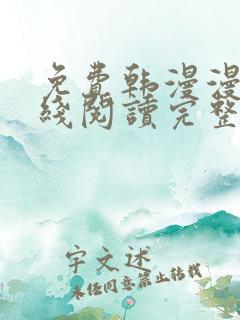 免費韩漫漫
綫閱讀完整
宇文述
未经同意禁止转载